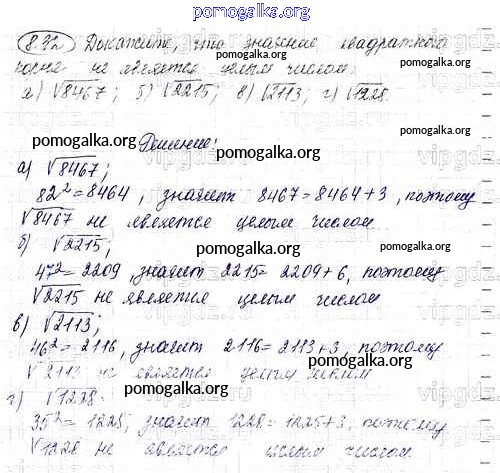 pomogalka.org
8.32 Докажите, что значение квадратного
корня не является целым числом:
а) √8467; б) √2215; в) √2113; г) √1228.
pomogalka.org
pomogalka.org pomogalka.org
Решение:
pomogalka.org
а) √8467;
pomogalka.org
82² = 8464, значит 8467 = 8464 + 3, поэтому
√8467 не является целым числом
б) √2215;
pomogalka.org
47² = 2209, значит 2215 = 2209 + 6, поэтому
√2215 не является целым числом
pomogalka.org
в) √2113;
pomogalka.org
46² = 2116, значит 2116 = 2113 + 3, поэтому
pomogalka.org
√2113 не является целым числом
г) √1228.
pomogalka.org
35² = 1225, значит 1228 = 1225 + 3, поэтому
√1228 не является целым числом.
pomogalka.org